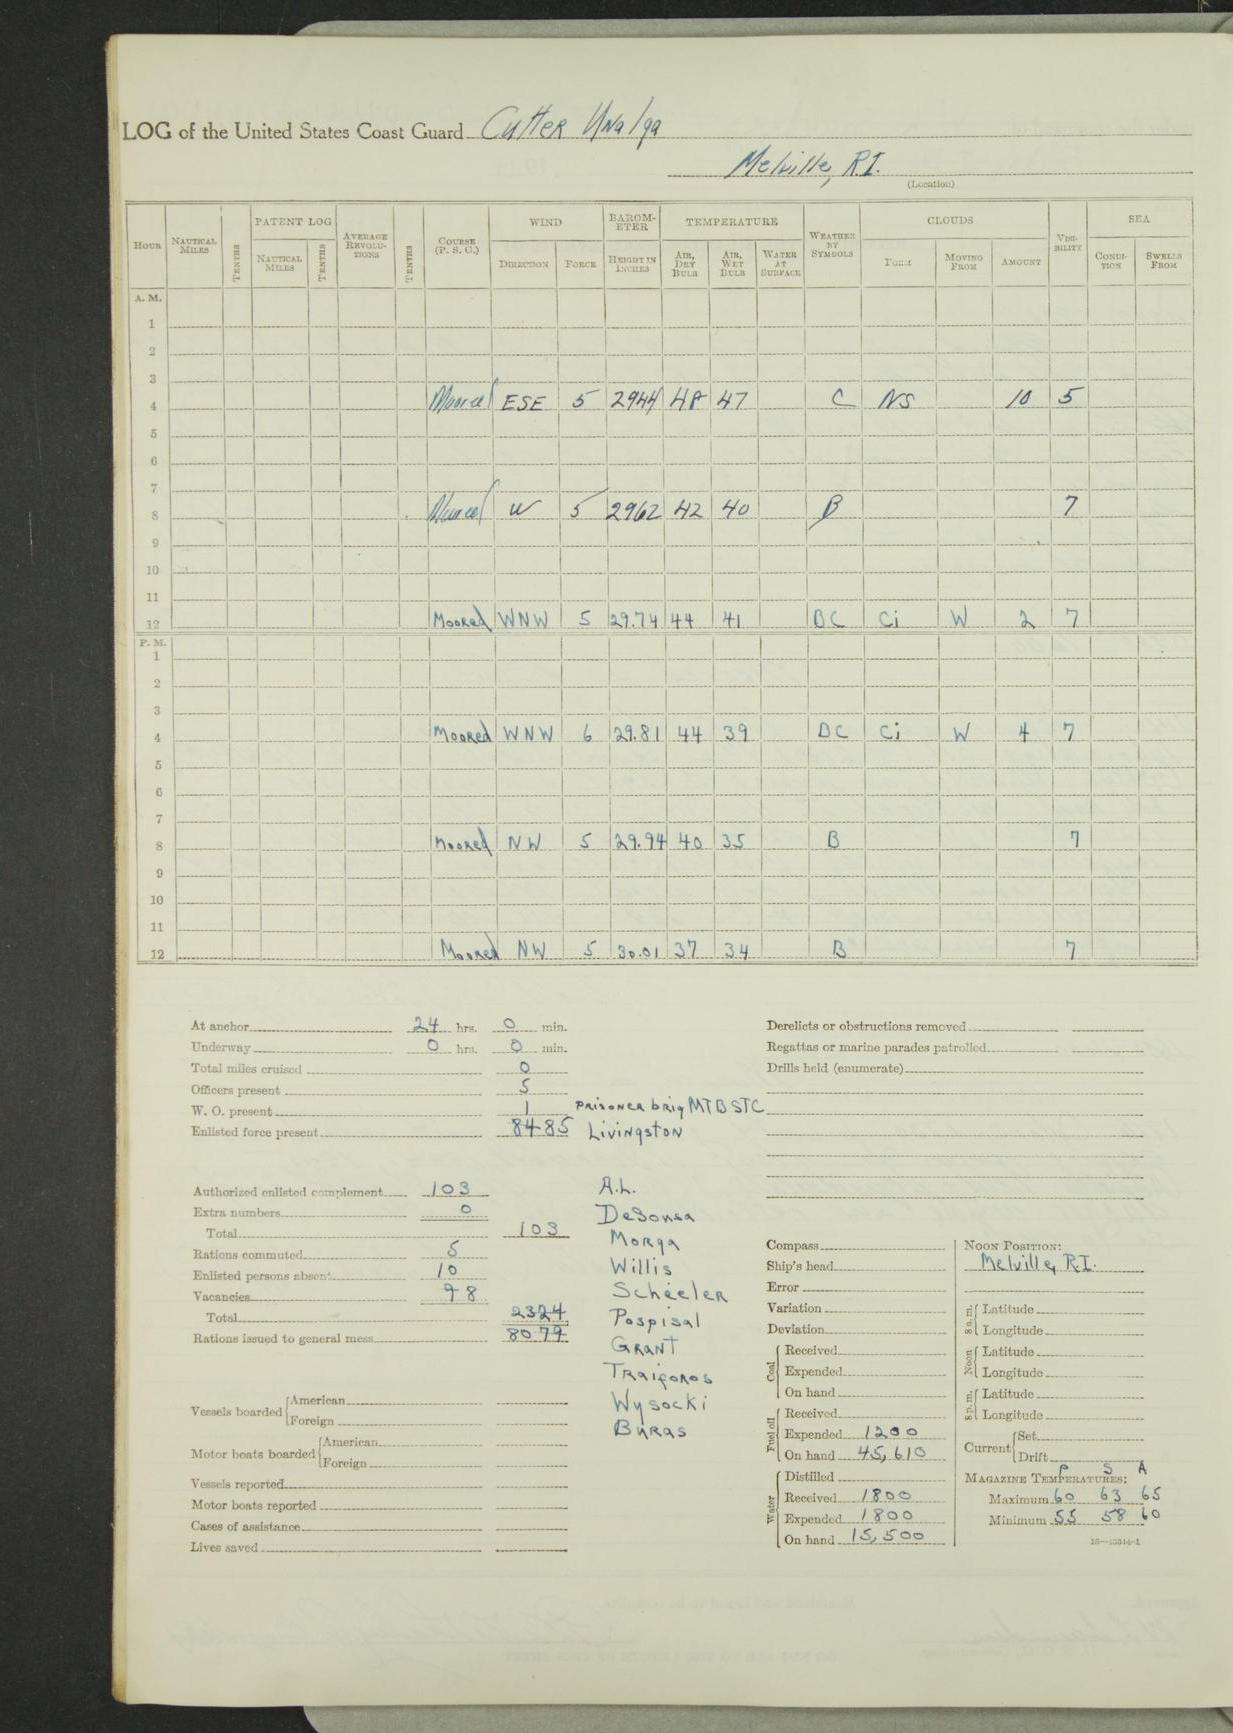 LOG of the United States Coast Guard Cutter Unalga
Melville, R.I.
(Location)
HOUR NAUTICAL MILES TENTHS PATENT LOG NAUTICAL MILES TENTHS AVERAGE REVOLUTIONS TENTHS COURSE (P. S. C.) WIND DIRECTION FORCE BAROMETER HEIGHT IN INCHES TEMPERATURE AIR, DRY BULB AIR, WET BULB WATER AT SURFACE WEATHER BY SYMBOLS CLOUDS FORM MOVING FROM AMOUNT VISIBILITY SEA CONDITION SWELLS FROM
A. M.
1
2
3
4 Moored ESE 5 2944 48 47 C NS 10 5
5
6
7
8 Moored W 5 2962 42 40 B 7
9
10
11
12 Moored WNW 5 29.74 44 41 BC Ci W 2 7
P. M.
1
2
3
4 Moored WNW 6 29.81 44 39 BC Ci W 4 7
5
6
7
8 Moored NW 5 29.94 40 35 B 7
9
10
11
12 Moored NW 5 30.01 37 34 B 7
At anchor 24 hrs. 0 min.
Underway 0 hrs. 0 min.
Total miles cruised 0
Officers present 5
W. O. present 1 Prisoner brig MTBSTC
Enlisted force present 84 85 Livingston
Authorized enlisted complement 103
Extra numbers 0
Total 103
Rations commuted 5
Enlisted persons absent 10
Vacancies 9 8
Total 23 24
Rations issued to general mess 80 79
A.L.
DeSousa
Morga
Willis
Scheeler
Pospisal
Grant
Traiforos
Wysocki
Buras
Vessels boarded American
Foreign
Motor boats boarded American
Foreign
Vessels reported
Motor boats reported
Cases of assistance
Lives saved
Derelicts or obstructions removed
Regattas or marine parades patrolled
Drills held (enumerate)
Compass
Ship's head
Error
Variation
Deviation
Coal Received
Expended
On hand
Fuel oil Received
Expended 1200
On hand 45,610
Water Distilled
Received 1800
Expended 1800
On hand 15,500
NOON POSITION:
Melville, R.I.
8 a.m. Latitude
Longitude
Noon Latitude
Longitude
8 p.m. Latitude
Longitude
Current Set
Drift
P S A
MAGAZINE TEMPERATURES:
Maximum 60 63 65
Minimum 55 58 60